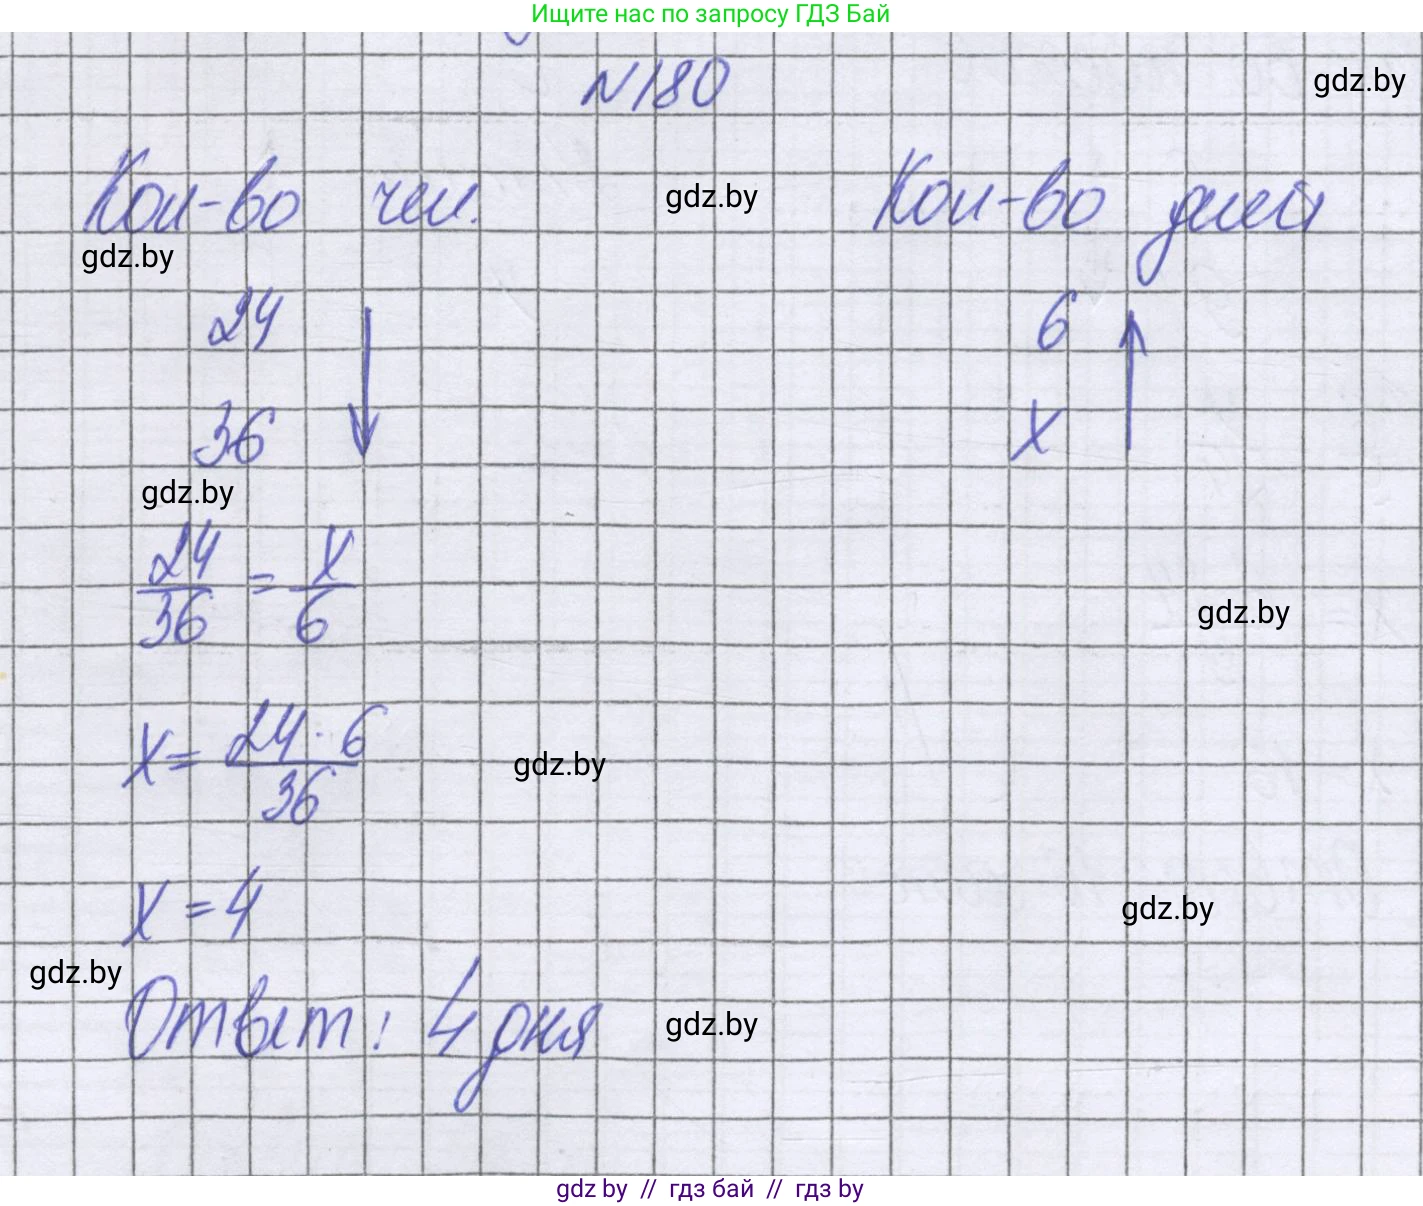 Ищите нас по запросу ГДЗ Бай
№180
gdz.by
Кол-во чел.
gdz.by
Кол-во дней
gdz.by
24
6
36
x
gdz.by
24/36 = x/6
gdz.by
x = 24·6/36
gdz.by
x = 4
gdz.by
gdz.by
Ответ: 4 дня
gdz.by
gdz by // гдз бай // гдз by